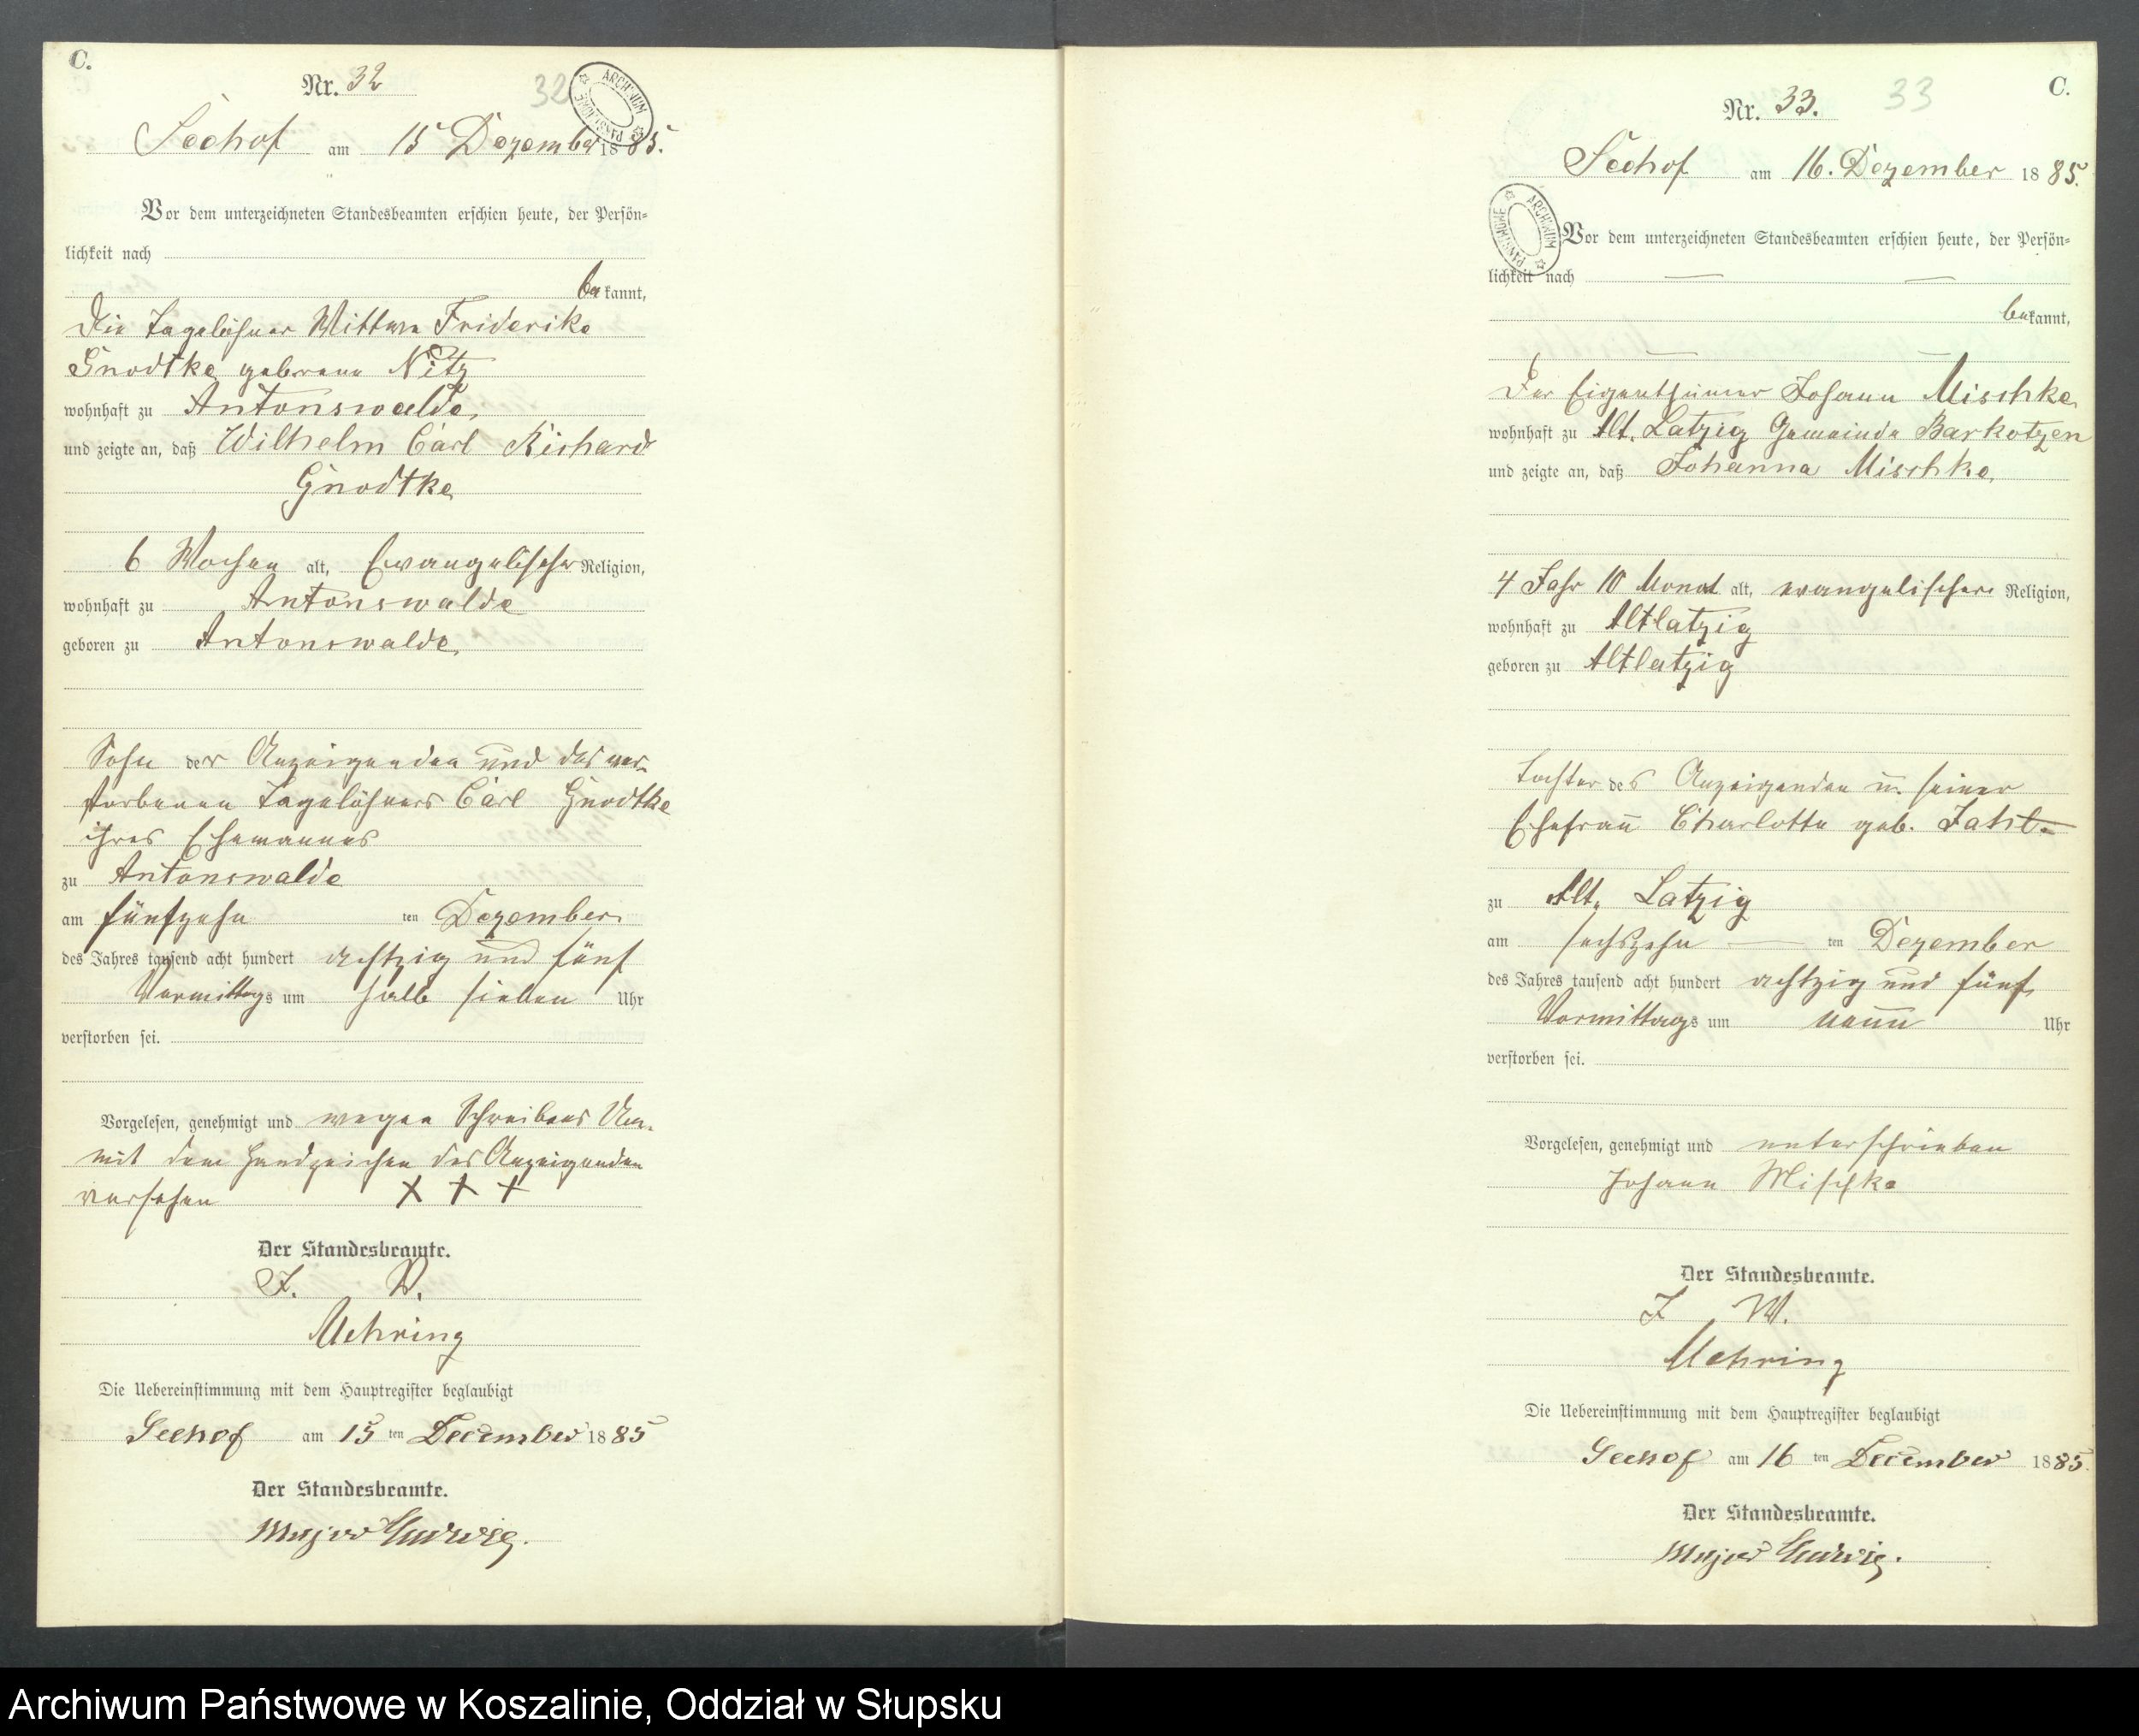 C.
Nr. 32
32
ARCHIWUM PAŃSTWOWE
Seehof am 15 Dezember 1885.
Vor dem unterzeichneten Standesbeamten erschien heute, der Persön-
lichkeit nach
bekannt,
die Tagelöhner Wittwe Friderike
Gnodtke geborene Nitz
wohnhaft zu Antonswalde,
und zeigte an, daß Wilhelm Carl Richard
Gnodtke
6 Wochen alt, Ewangelischer Religion,
wohnhaft zu Antonswalde
geboren zu Antonswalde,
Sohn der Anzeigenden und des ver-
storbenen Tagelöhners Carl Gnodtke
ihres Ehemannes
zu Antonswalde
am fünfzehn ten Dezember
des Jahres tausend acht hundert achtzig und fünf
Vormittags um halb sieben Uhr
verstorben sei.
Vorgelesen, genehmigt und wegen Schreibens Un.
mit dem Handzeichen des Anzeigenden
versehen X X X
Der Standesbeamte.
J. V.
Mehring
Die Uebereinstimmung mit dem Hauptregister beglaubigt
Seehof am 15 ten December 1885
Der Standesbeamte.
Major
C.
Nr. 33.
33
Seehof am 16. Dezember 1885.
ARCHIWUM PAŃSTWOWE
Vor dem unterzeichneten Standesbeamten erschien heute, der Persön-
lichkeit nach
bekannt,
Der Eigenthümer Johann Mischke
wohnhaft zu Alt. Latzig Gemeinde Barkotzen
und zeigte an, daß Johanna Mischke,
4 Jahr 10 Monat alt, evangelischer Religion,
wohnhaft zu Altlatzig
geboren zu Altlatzig
Tochter des Anzeigenden u. seiner
Ehefrau Charlotte geb.
zu Alt. Latzig
am sechszehn ten Dezember
des Jahres tausend acht hundert achtzig und fünf
Vormittags um neun Uhr
verstorben sei.
Vorgelesen, genehmigt und unterschrieben
Johann Mischke
Der Standesbeamte.
J W.
Mehring
Die Uebereinstimmung mit dem Hauptregister beglaubigt
Seehof am 16 ten December 1885.
Der Standesbeamte.
Major
Archiwum Państwowe w Koszalinie, Oddział w Słupsku